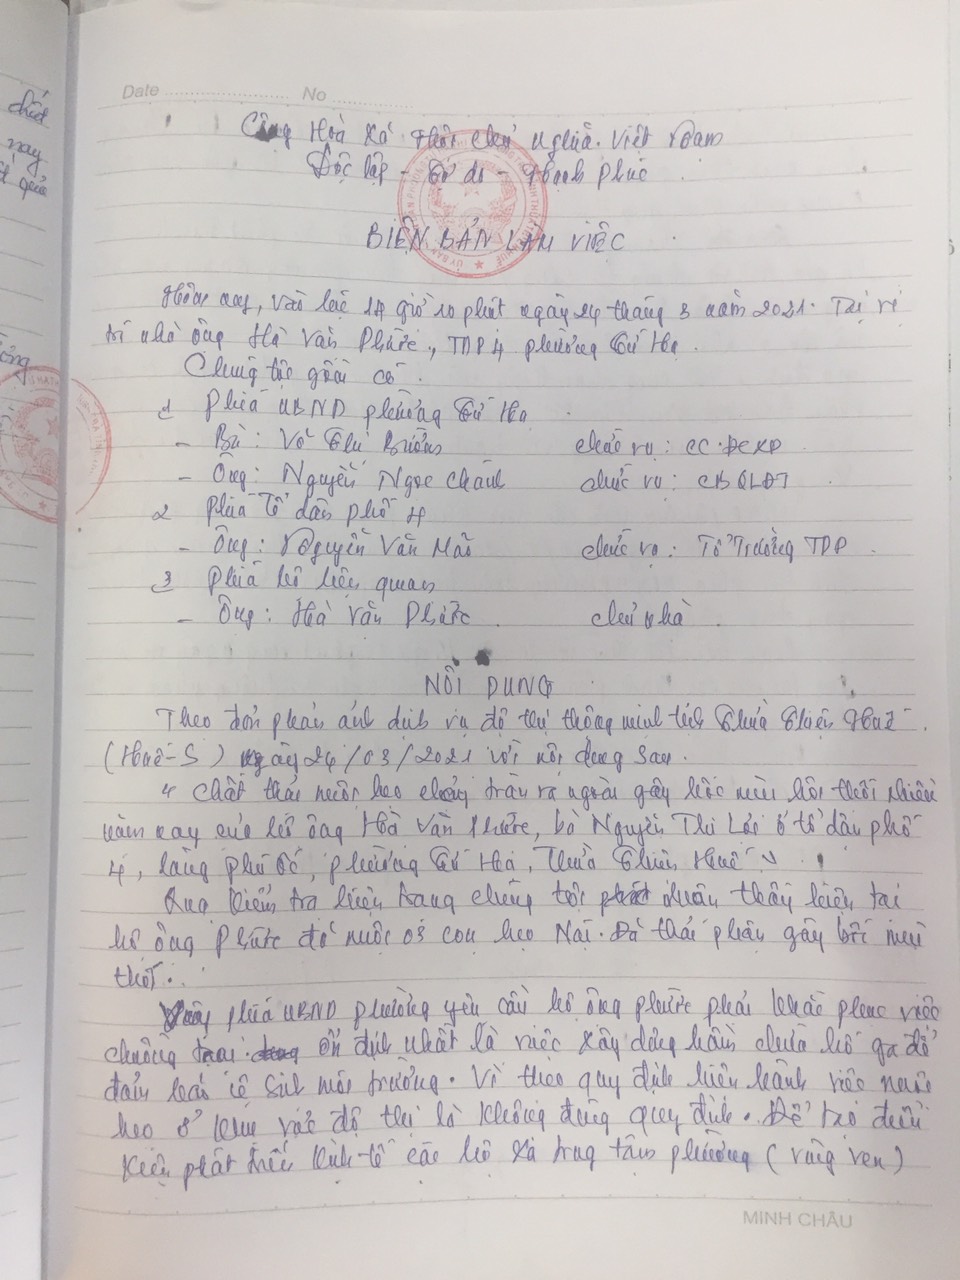 Date ........................ No ................
Cộng Hoà Xã Hội Chủ Nghĩa Việt Nam
Độc lập - Tự do - Hạnh phúc
BIÊN BẢN LÀM VIỆC
Hôm nay, vào lúc 14 giờ 10 phút ngày 24 tháng 3 năm 2021. Tại vị
trí nhà ông Hà Văn Phước, TDP 4 phường Tứ Hạ.
Chúng tôi gồm có.
1 Phía UBND phường Tứ Hạ
- Bà: Võ Thị chức vụ: CC.ĐCXD
- Ông: Nguyễn Ngọc Chánh chức vụ: CBQLĐT
2 Phía Tổ dân phố 4
- Ông: Nguyễn Văn chức vụ: Tổ Trưởng TDP
3 Phía hộ liên quan
- Ông: Hà Văn Phước chủ nhà
NỘI DUNG
Theo đơn phản ánh dịch vụ đô thị thông minh tỉnh Thừa Thiên Huế
(Huế-S) ngày 24/03/2021 với nội dung sau.
" Chất thải nuôi heo chảy tràn ra ngoài gây bốc mùi hôi thối nhiều
năm nay của hộ ông Hà Văn Phước, bà Nguyễn Thị ở tổ dân phố
4, làng Phú Ốc, phường Tứ Hạ, Thừa Thiên Huế "
Qua kiểm tra hiện trạng chúng tôi nhận thấy hiện tại
hộ ông Phước có nuôi 03 con heo Nái. Đã thải phân gây bốc mùi
thối.
phía UBND phường yêu cầu hộ ông Phước phải khắc phục việc
chuồng trại ổn định nhất là việc xây dựng hầm chứa hố ga để
đảm bảo vệ sinh môi trường. Vì theo quy định hiện hành việc nuôi
heo ở khu vực đô thị là không đúng quy định. Để tạo điều
kiện phát triển kinh tế các hộ xa trung tâm phường (vùng ven)
MINH CHÂU